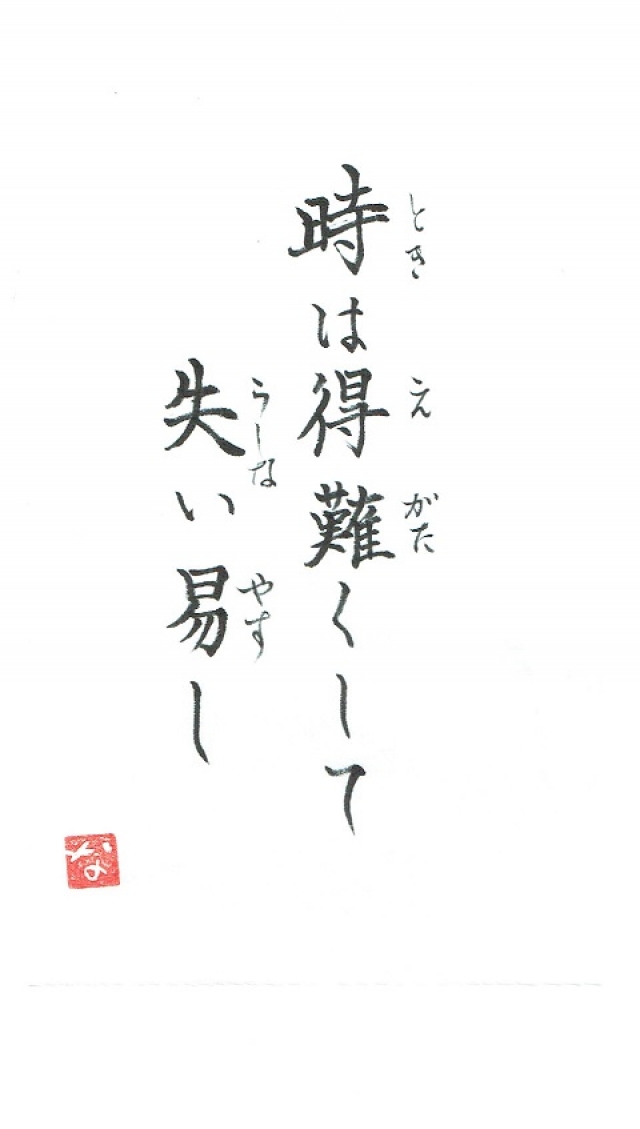 時は得難くして
とき え がた
失い易し
うしな やす
な